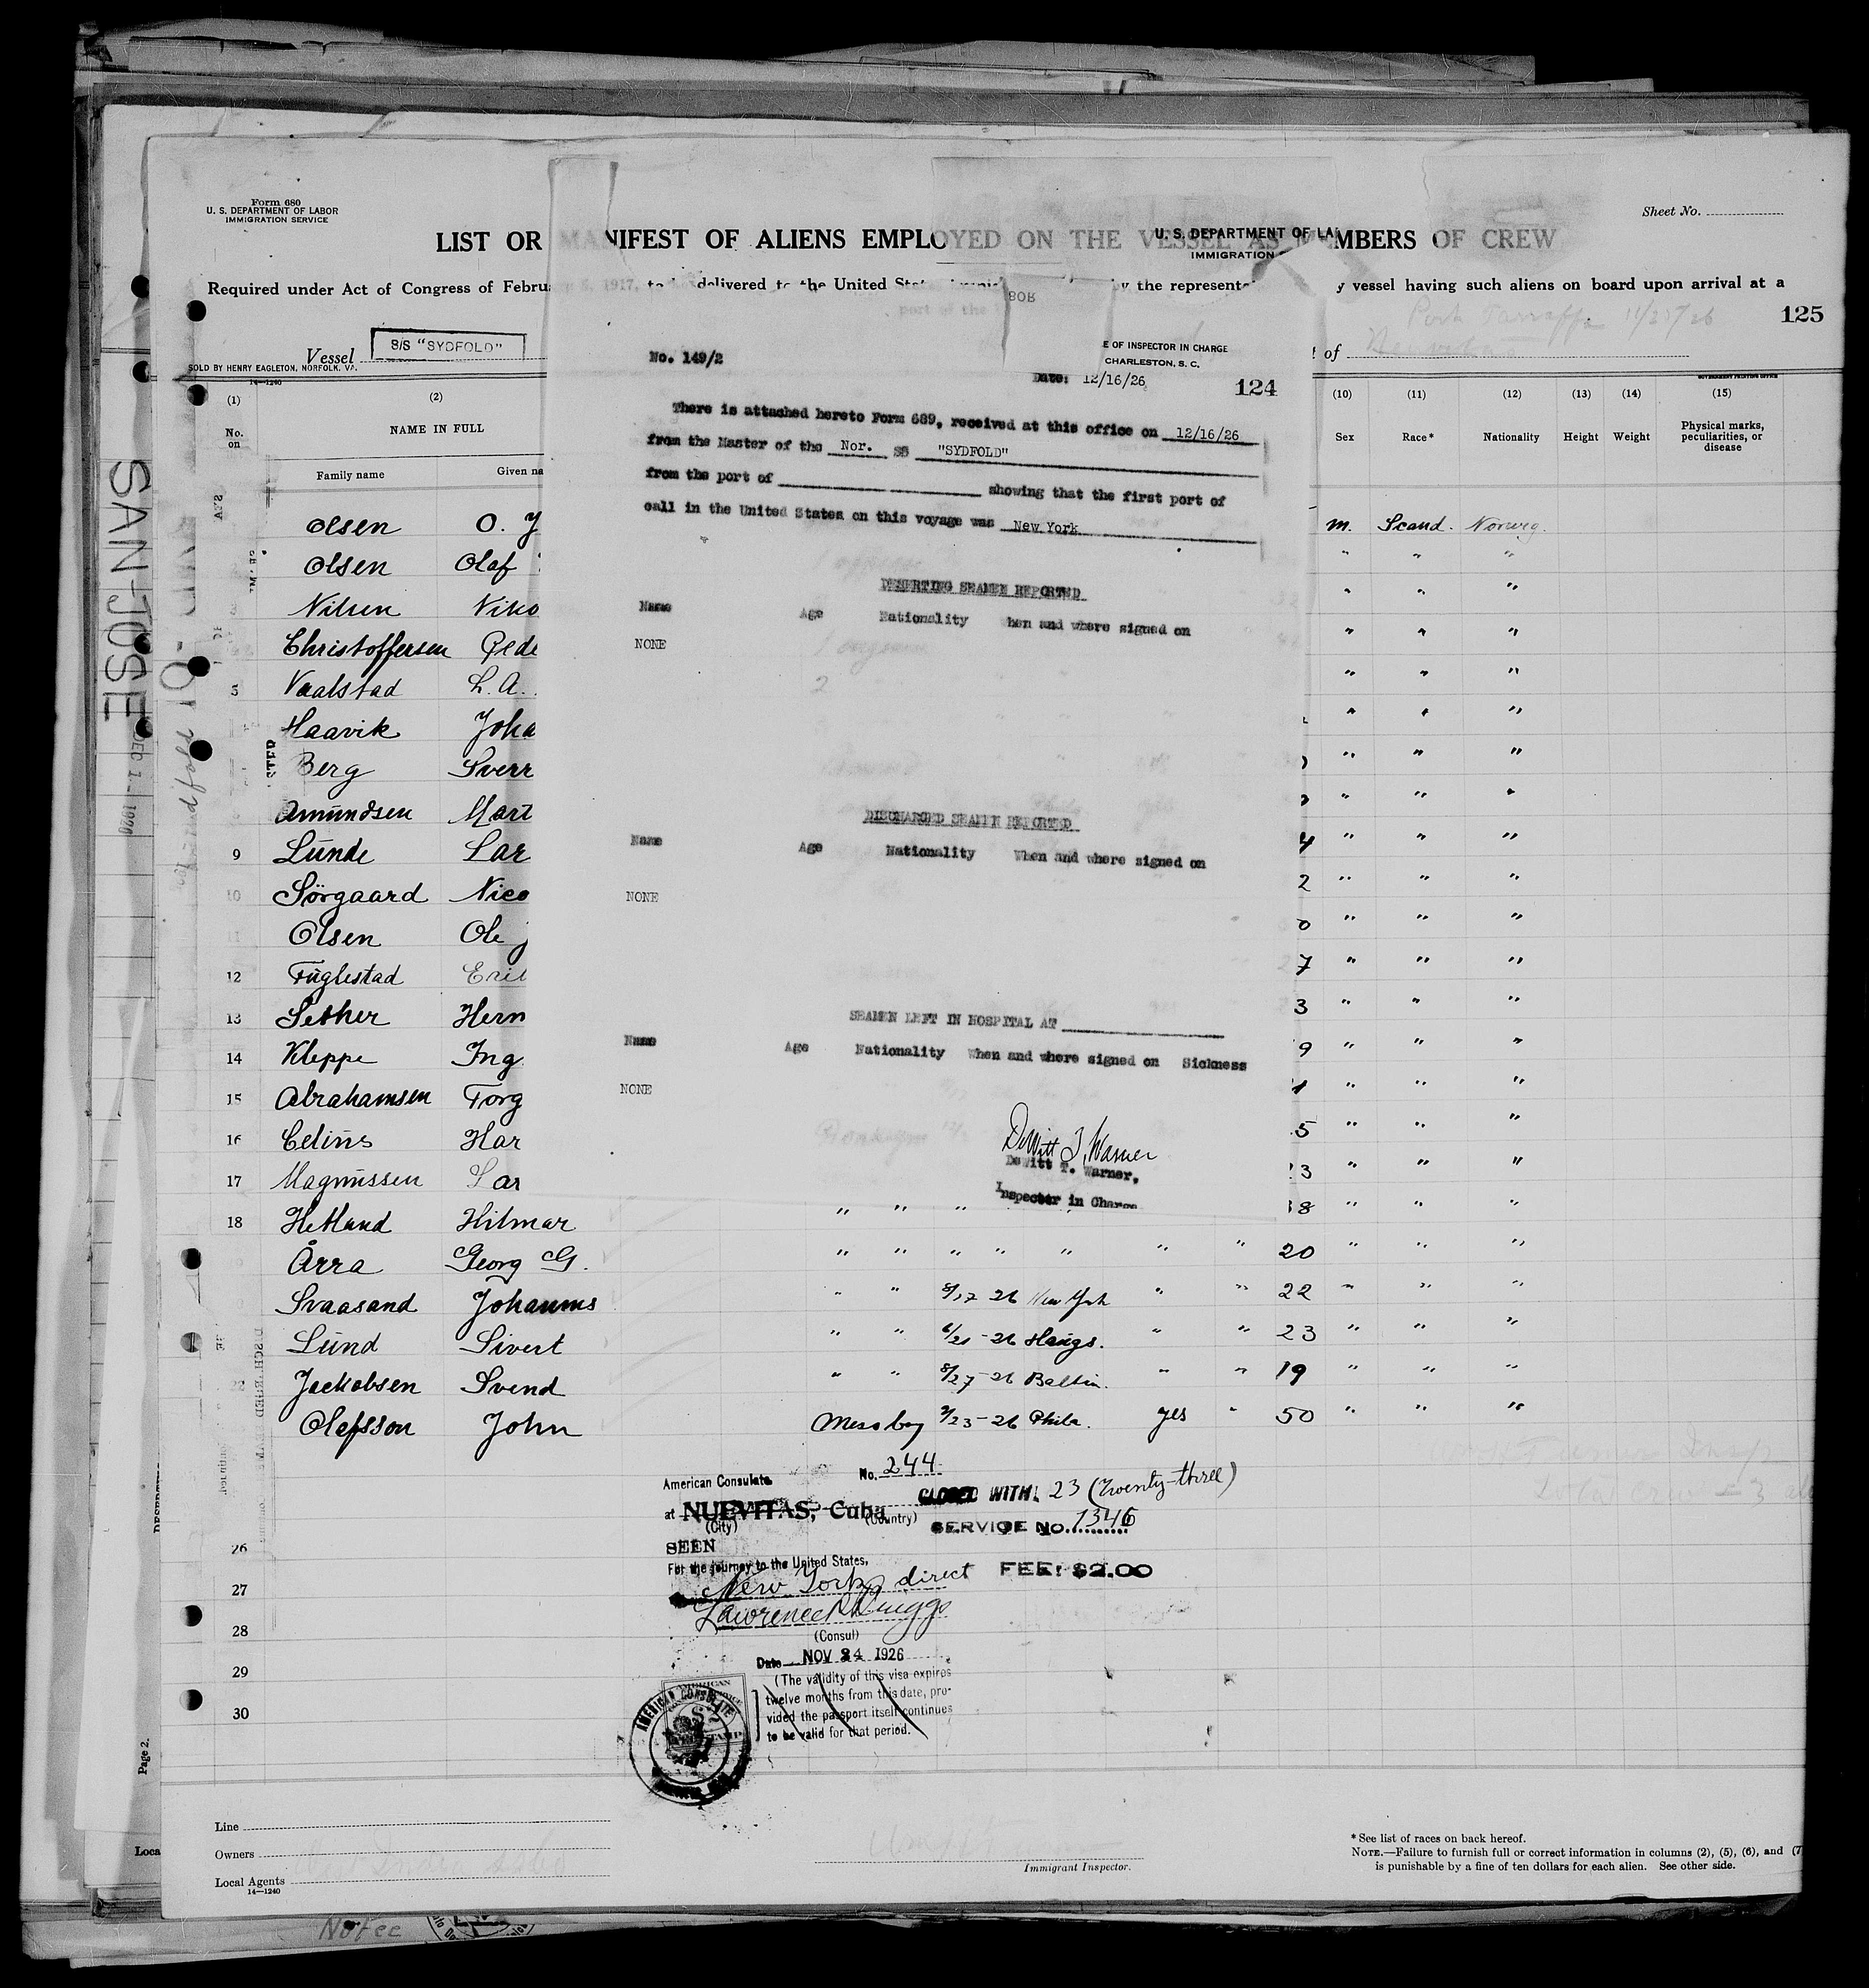 Form 680
U. S. DEPARTMENT OF LABOR
IMMIGRATION SERVICE
Sheet No.
LIST OR MANIFEST OF ALIENS EMPLOYED ON THE VESSEL AS MEMBERS OF CREW
U. S. DEPARTMENT OF LA
IMMIGRATION
Required under Act of Congress of Febru 5, 1917, to delivered to the United by the represent y vessel having such aliens on board upon arrival at a
part of the
BOR
125
Vessel S/S "SYDFOLD"
of Nuevitas
SOLD BY HENRY EAGLETON, NORFOLK, VA.
14—1240
No. 149/2
E OF INSPECTOR IN CHARGE
CHARLESTON, S. C.
Date: 12/16/26
124
There is attached hereto Form 689, received at this office on 12/16/26
from the Master of the Nor. SS "SYDFOLD"
from the port of showing that the first port of
call in the United States on this voyage was New York
DESERTING SEAMEN REPORTED
Name Age Nationality hen and where signed on
NONE
DISCHARGED SEAMEN REPORTED
Name Age Nationality When and where signed on
NONE
SEAMEN LEFT IN HOSPITAL AT
Name Age Nationality When and where signed on Sickness
NONE
DeWitt T. Warner
DeWitt T. Warner,
Inspector in Charge
(1) (2) (10) (11) (12) (13) (14) (15)
No. on NAME IN FULL Sex Race* Nationality Height Weight Physical marks, peculiarities, or disease
Family name Given na
Olsen O. J m. Scand. Norweg.
Olsen Olaf " " "
3 Nilsen Niko " " "
Christoffersen Pede " " "
5 Vaalstad L. A. " " "
Haavik Joha " " "
Berg Sverr " " "
Amundsen Mart " " "
9 Lunde Lar 4 " " "
10 Sörgaard Nico 2 " " "
11 Olsen Ole J 0 " " "
12 Fuglestad Eril 7 " " "
13 Sether Herm 3 " " "
14 Kleppe Ing 9 " " "
15 Abrahamsen Torg " " "
16 Celius Har 5 " " "
17 Magnussen Lar 3 " " "
18 Hetland Hilmar " " " 8 " " "
Årra Georg G. " " " " " " " 20 " " "
Svaasand Johannes " " 8/17 26 New York " " 22 " " "
Lund Sivert " " 6/21-26 Haugs. " " 23 " " "
22 Jackobsen Svend " " 8/27-26 Baltim. " " 19 " " "
Olafsson John Messboy 7/23-26 Phila. yes " 50 " " "
26
27
28
29
30
American Consulate No. 244
at NUEVITAS, Cuba
(City) (Country)
CLOSED WITH 23 (Twenty-three)
SERVICE NO. 1346
SEEN
For the journey to the United States,
FEE: $2.00
New York direct
(Consul)
Date NOV 24 1926
(The validity of this visa expires
twelve months from this date, pro-
vided the passport itself continues
to be valid for that period.
AMERICAN CONSULATE
Line
Owners
Local Agents
14—1240
Immigrant Inspector.
* See list of races on back hereof.
NOTE.—Failure to furnish full or correct information in columns (2), (5), (6), and (7
is punishable by a fine of ten dollars for each alien. See other side.
SAN-JOSE
DEC 1 - 1926
Page 2.
Loca
Notee